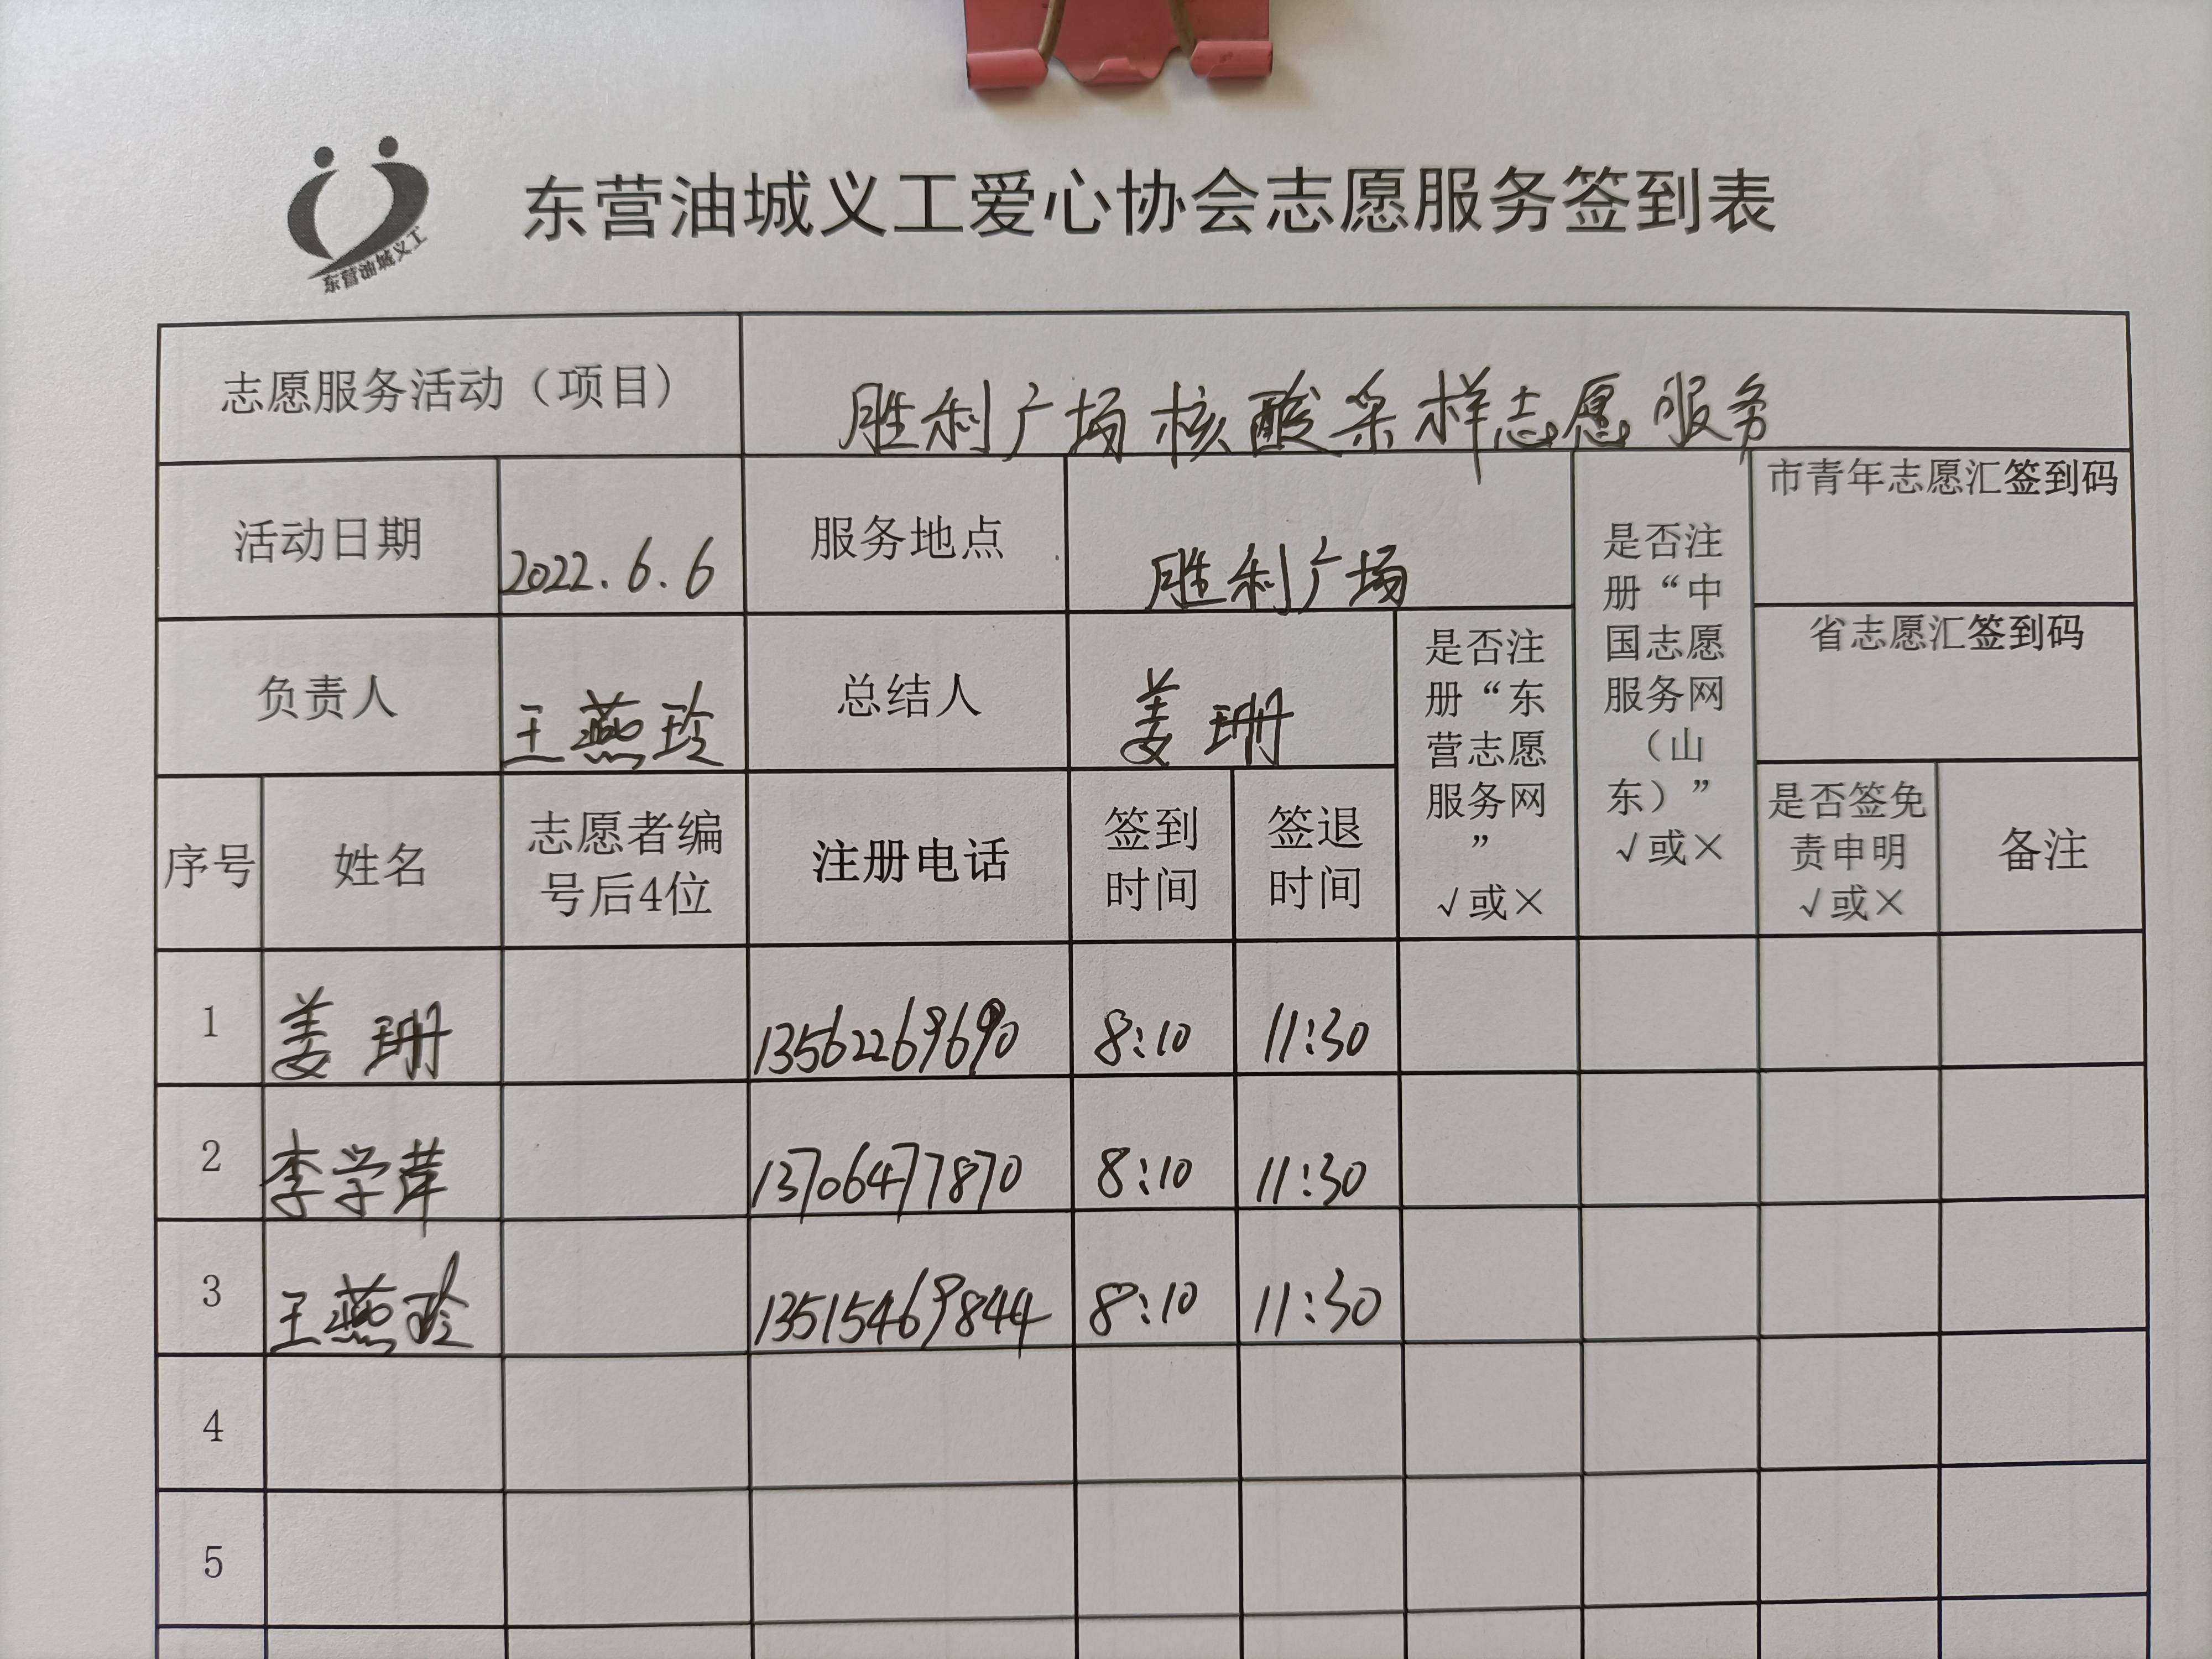 东营油城义工
东营油城义工爱心协会志愿服务签到表
志愿服务活动（项目） 胜利广场核酸采样志愿服务
活动日期 2022.6.6 服务地点 胜利广场
是否注册“中国志愿服务网（山东）”√或×
市青年志愿汇签到码
省志愿汇签到码
负责人 王燕玲 总结人 姜珊
是否注册“东营志愿服务网”√或×
序号 姓名 志愿者编号后4位 注册电话 签到时间 签退时间 是否签免责申明√或× 备注
1 姜珊 13562269690 8:10 11:30
2 李学萍 13706477870 8:10 11:30
3 王燕玲 13515469844 8:10 11:30
4
5